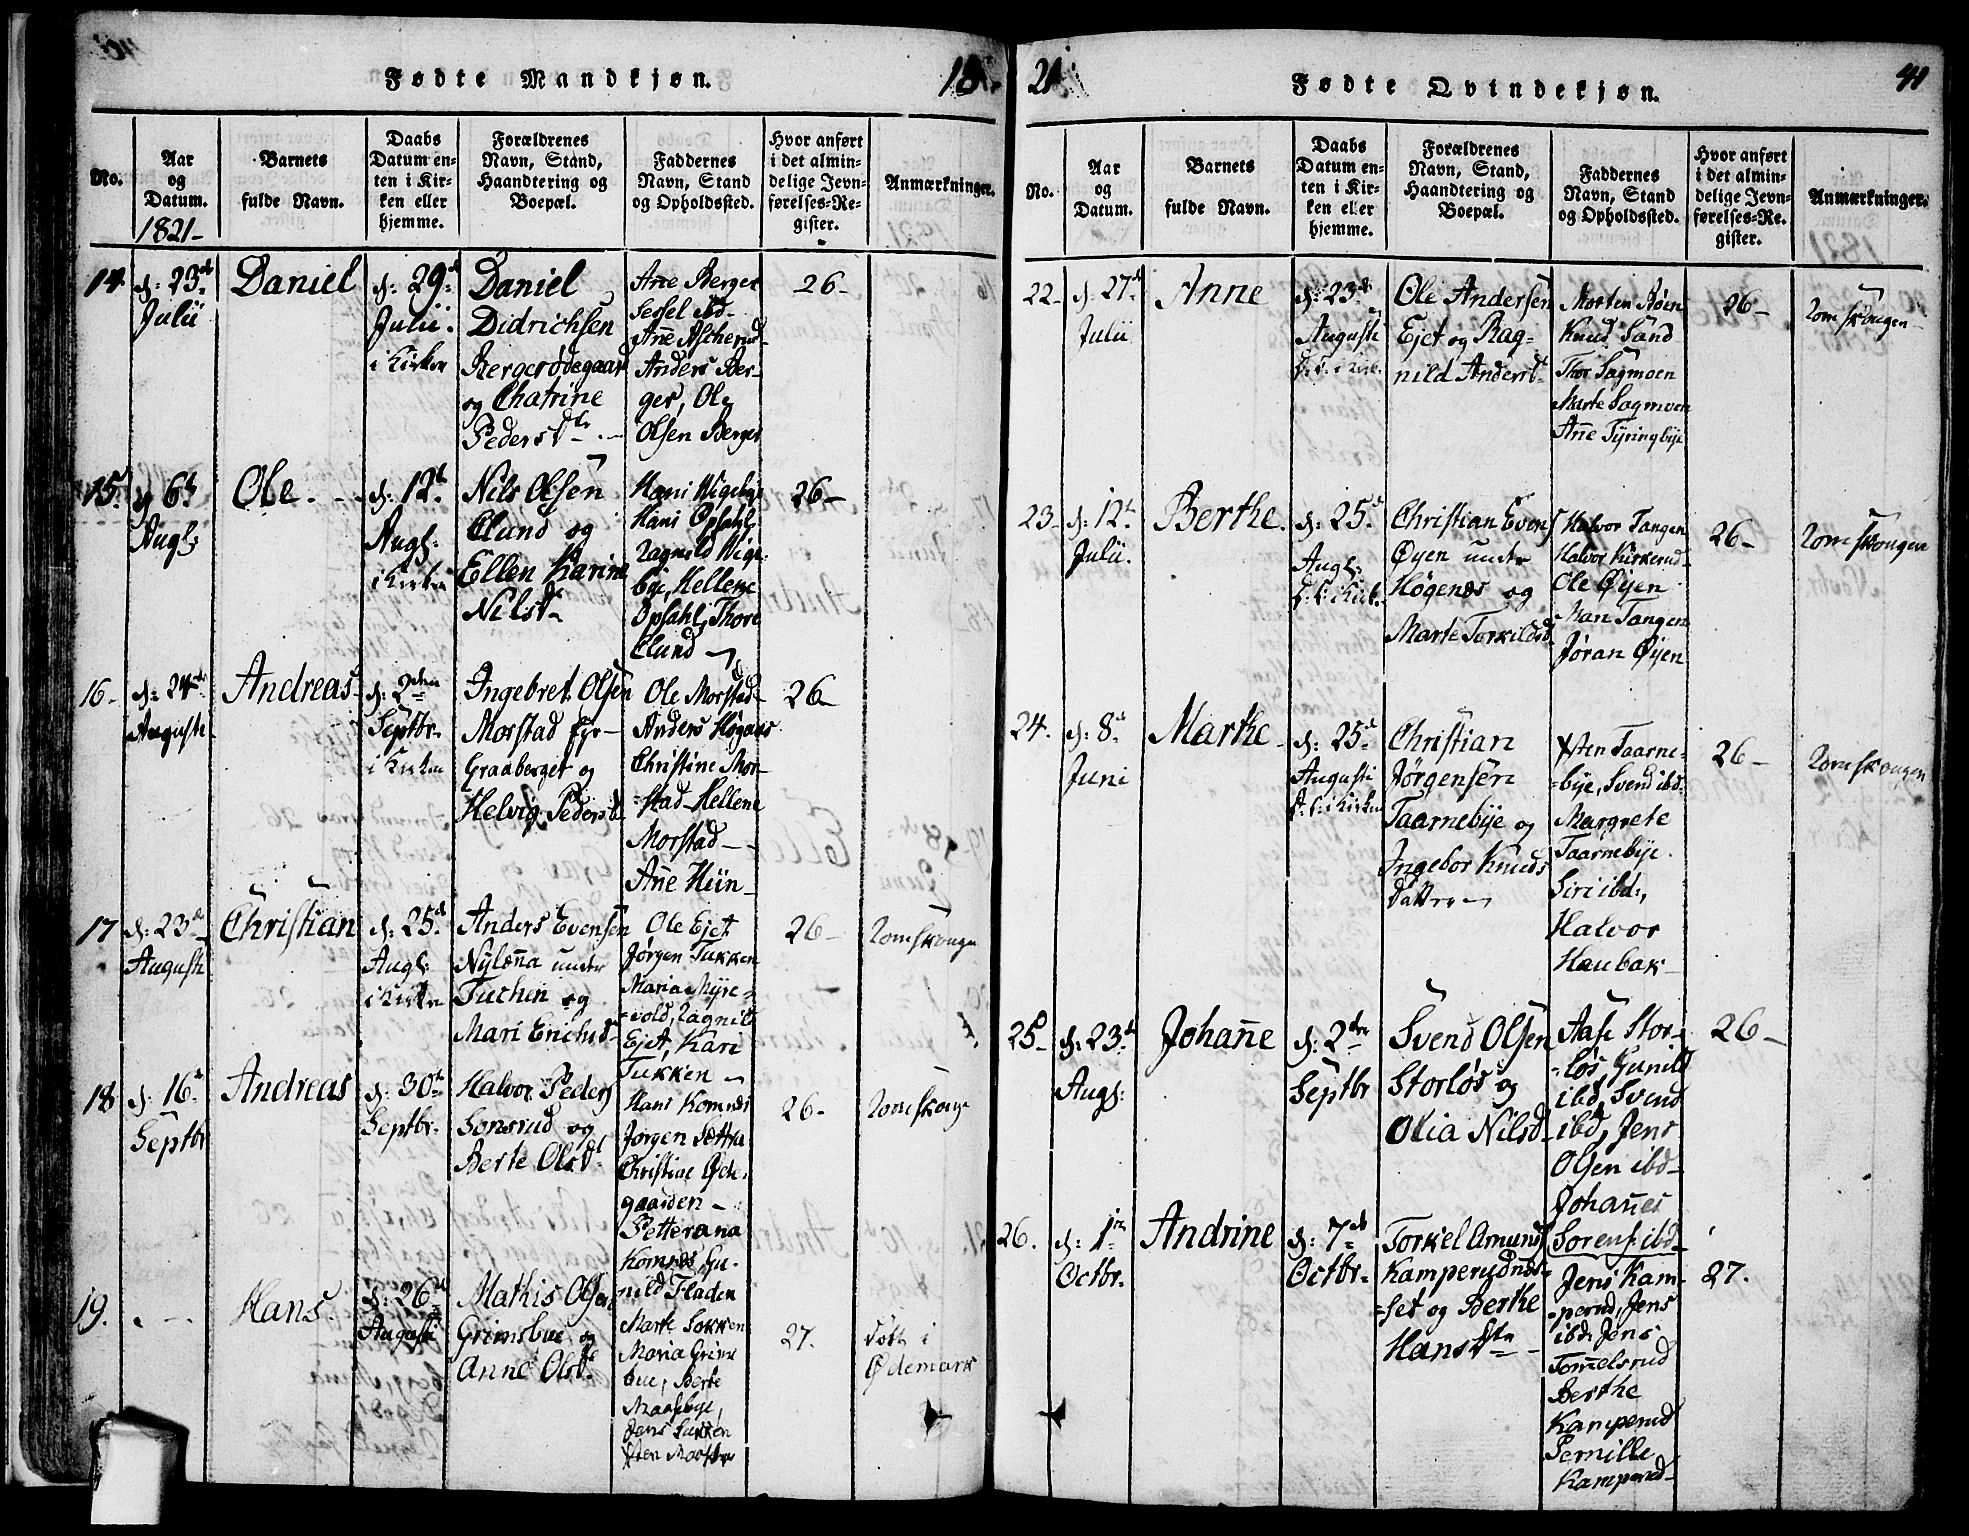 Fødte Mandkjøn.
18
No.
Aar
og
Datum.
1821-
Barnets
fulde Navn.
Daabs
Datum en-
ten i Kir-
ken eller
hjemme.
Forældrenes
Navn, Stand,
Haandtering og
Boepæl.
Faddernes
Navn, Stand
og Opholdssted.
Hvor anført
i det almin-
delige Jevn-
førelses-Re-
gister.
Anmærkninger.
14.
d: 23de
Julii
Daniel
d: 29de
Julii.
i Kirken
Daniel
Didrichsen
Bergerødegaard
og Chatrine
Pedersdtr
Añe Berger
Sessel ibd-
Añe Ascherud
Anders Ber-
ger, Ole
Olsen Berger
26-
15.
6t
Augs:
Ole.
d: 12t
Augs:
i Kirken
Nils Olsen
Elund og
Ellen Karine
Nilsd
Hans Wigebye
Hans Opsahl,
Ragnild Wige-
bye, Hellene
Opsahl, Thore
Elund
26-
16-
d: 24de
Augusti-
Andreas
d: 2den
Septbr.
i Kirken
Ingebret Olsen
Morstad
Graaberget og
Helvig Pedersd
Ole Morstad-
Anders Høgnæs
Christine Mor-
=stad-Hellene
Morstad-
Añe Hiin-
26-
17
d: 23de
Augusti
Christian
d: 25de
Augs:
i Kirken
Anders Evensen
Nylæña under
Tuchen og
Mari Erichsd
Ole Ejet
Jørgen Tukken
Maria Myre=
=vold, Ragnild
Ejet, Kari
Tukken
26-
Romskougen
18
d: 16t
Septbr
Andreas
d: 30te
Septbr.
Halvor Peders
Sonsrud og
Berte Olsdt
Hans Kornnæs
Jørgen Sættra
Christine Øde-
gaarden-
Petterana
Kornnæs, Gu-
nild Fladen
26-
Romskouge
19.
Hans.
d: 26de
Augusti
Mathis Olsen
Grimsbue og
Anne Olsdt
Marte Sokken
Maria Grims
bue, Berte
Maasebye,
Jens Sukken
Sten Morstad
27.
døbt i
Ødemark
21
Fødte Qvindekjøn.
41
No.
Aar
og
Datum.
Barnets
fulde Navn.
Daabs
Datum en-
ten i Kir-
ken eller
hjemme.
Forældrenes
Navn, Stand,
Haandtering og
Boepæl.
Faddernes
Navn, Stand
og Opholdssted.
Hvor anført
i det almin-
delige Jevn-
førelses-Re-
gister.
Anmærkninger.
22-
d. 27de
Julii
Anne
d: 23de
Augusti
Ole Andersen
Ejet og Rag-
nild Andersdt
Morten Røen
Knud Sand
Thor Sagmoen
Marte Sagmoen
Añe Tyringbye
26-
Romskougen-
23-
d: 12te
Julii.
Berthe.
d: 25de
Augs:
Christian Evens
Øyen under
Høgenæs og
Marte Torkildsd
Halvor Tangen
Halvor Kirkerud-
Ole Øyen
Mari Tangen
Jøran Øyen
26-
Romskougen
24.
d: 8de
Juni
Marthe-
d: 25de
Augusti
Christian
Jørgensen
Taarnebye og
Ingebor Knuds
datter
Sten Taarne-
=bye, Svend ibd:
Margrete
Taarnebye.
Siri ibd:,
Halvor
Haubak
26-
Romskougen
25-
d: 23de
Augs:
Johañe
d: 2den
Septbr
Svend Olsen
Storløs og
Olia Nilsd
Aase Stor-
=løs, Gunild
ibd, Svend
ibd, Jens
Olsen ibd-
Johañes
Sørens: ibd-
26-
26.
d: 1ste
Octbr.
Andrine
d: 7de
Octbr.
Torkel Amunds
Kamperudnes-
=set og Berthe
Hansdtr
Jens Kam-
=perud, Jens
ibd: Jens
Tomelsrud
Berthe
Kamperud
Pernille
Kamperud-
27.